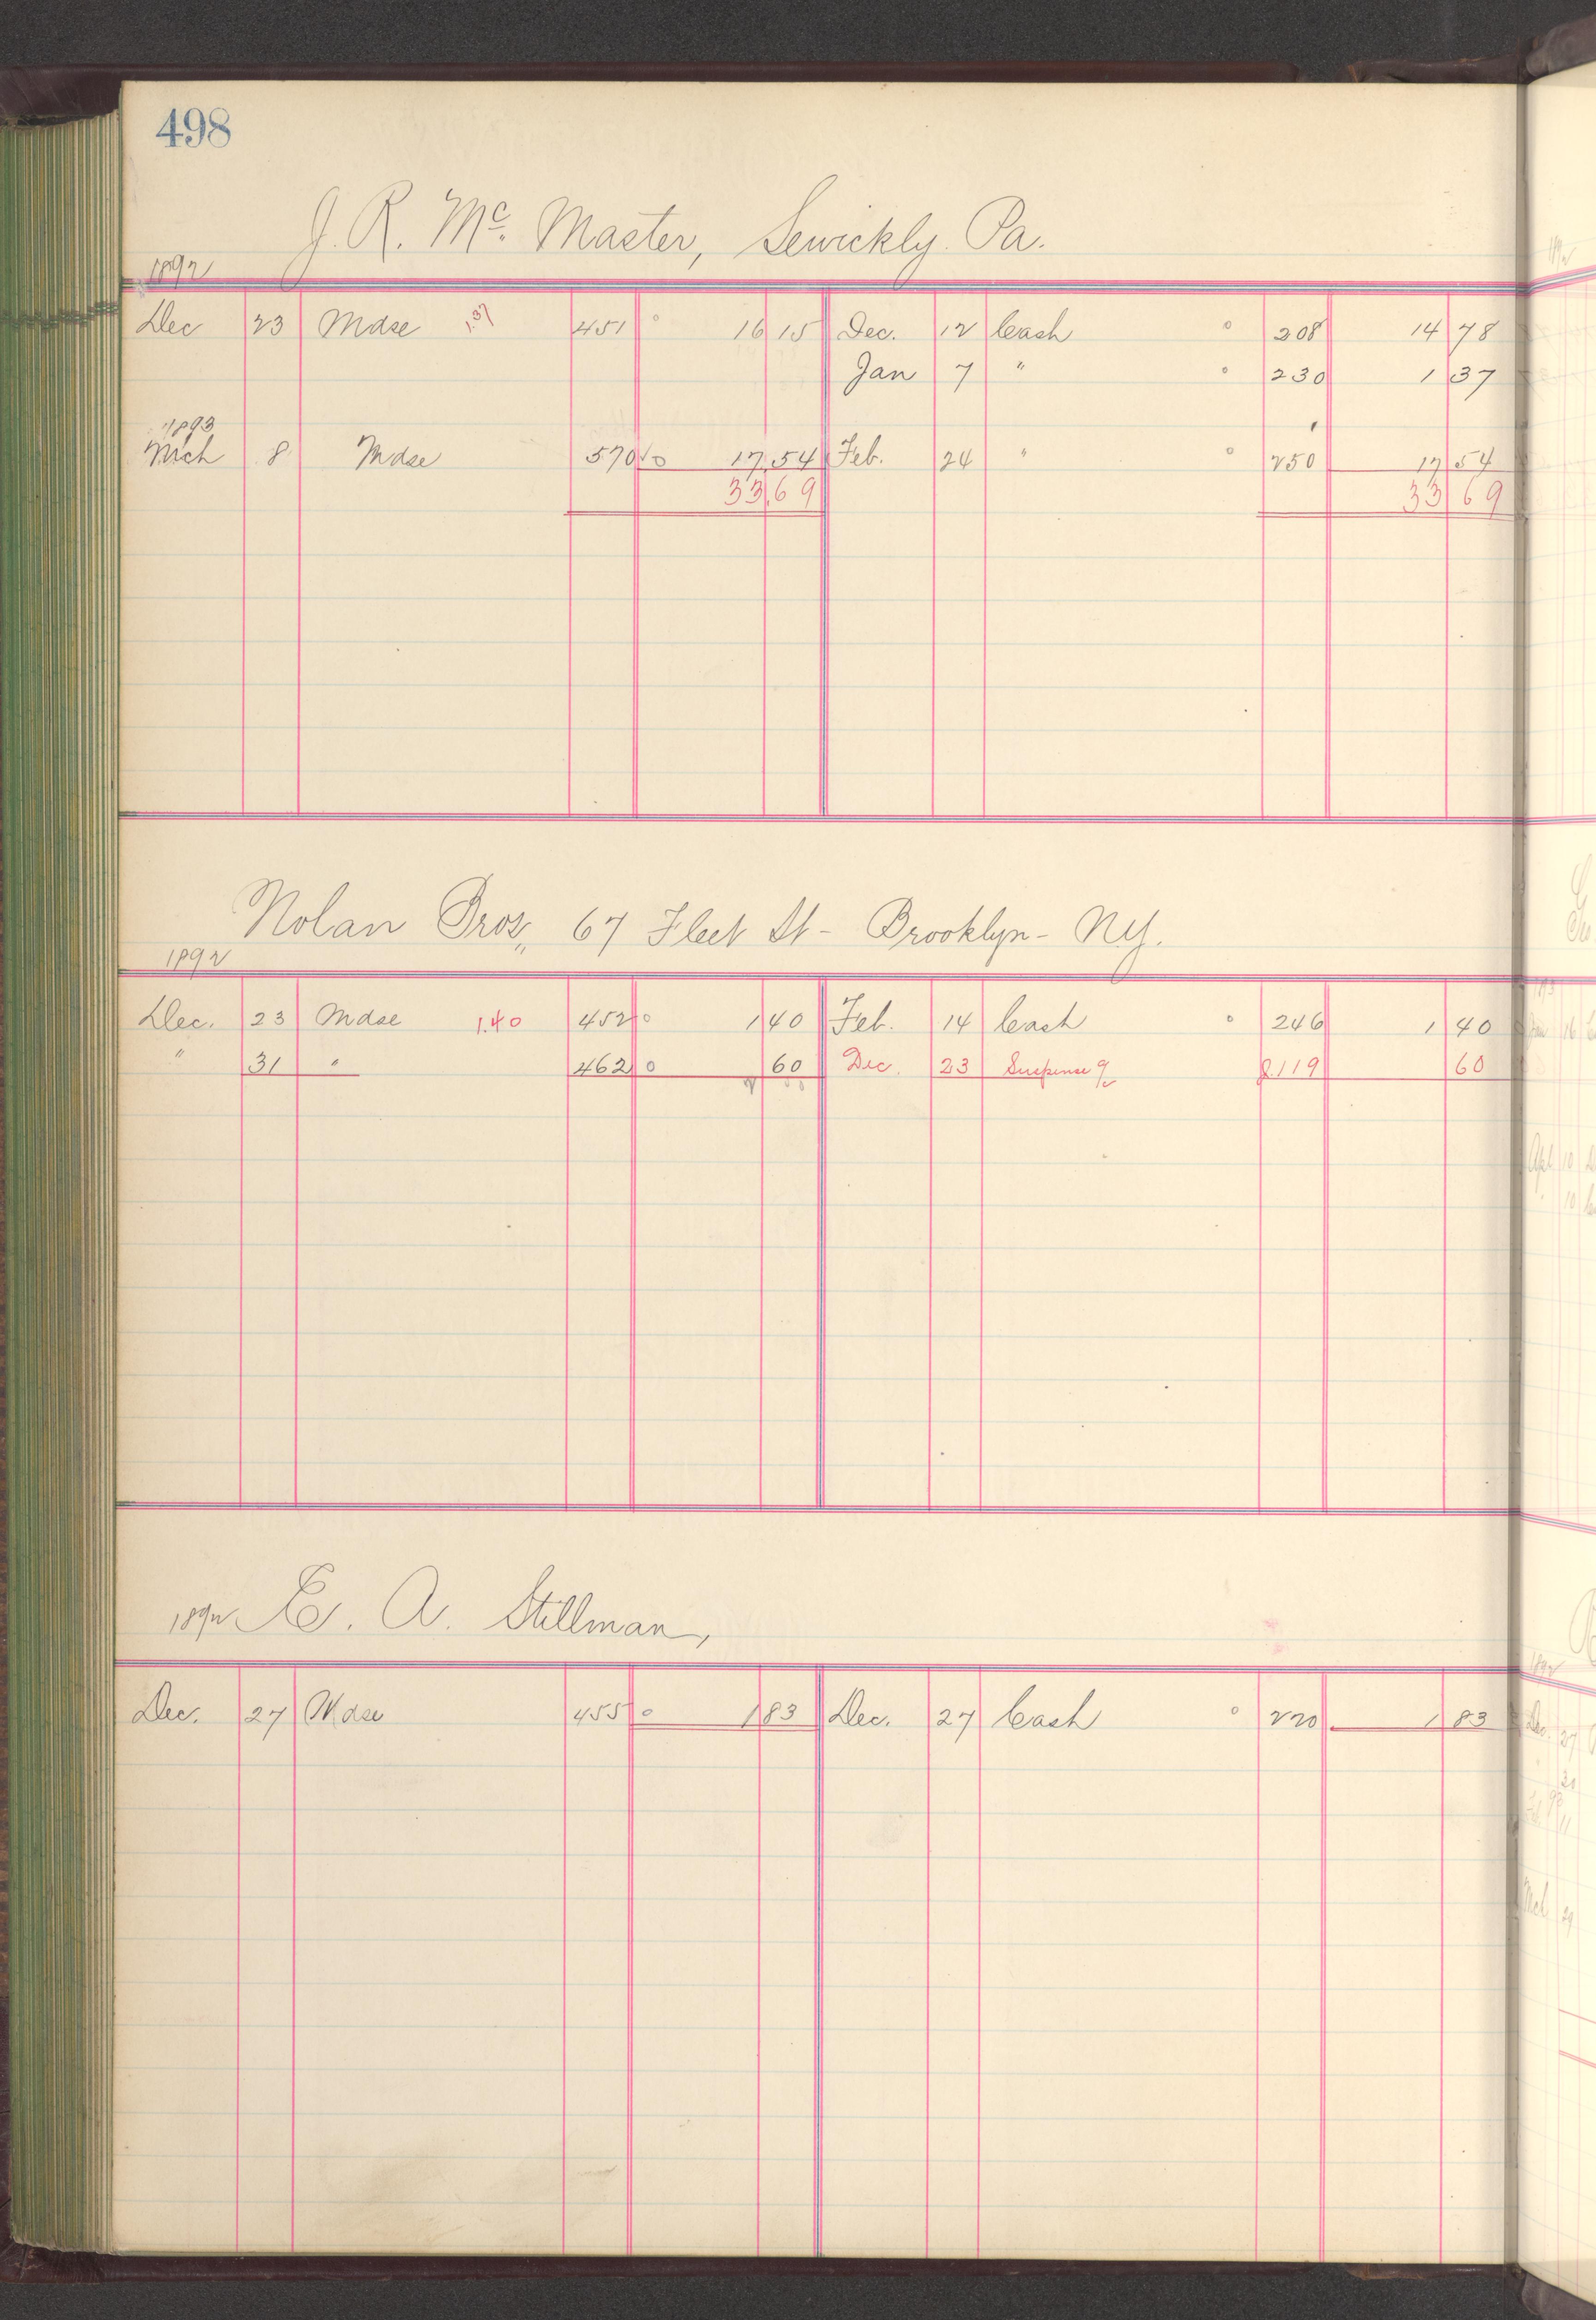 498
J. R. Mc. Master, Sewickly Pa.
1892
Dec 23 Mdse 1.37 451 16 15 Dec. 12 Cash 208 14 78
Jan 7 " 230 1 37
1893
Mch 8 Mdse 570 17 54 Feb. 24 " 250 17 54
33.69 33 69
Nolan Bros, 67 Fleet St - Brooklyn - N.Y.
1892
Dec. 23 Mdse 1.40 452 1 40 Feb. 14 Cash 246 1 40
" 31 " 462 60 Dec. 23 Suspense a/c J.119 60
1892 E. A. Stillman,
Dec. 27 Mdse 455 1 83 Dec. 27 Cash 220 1 83